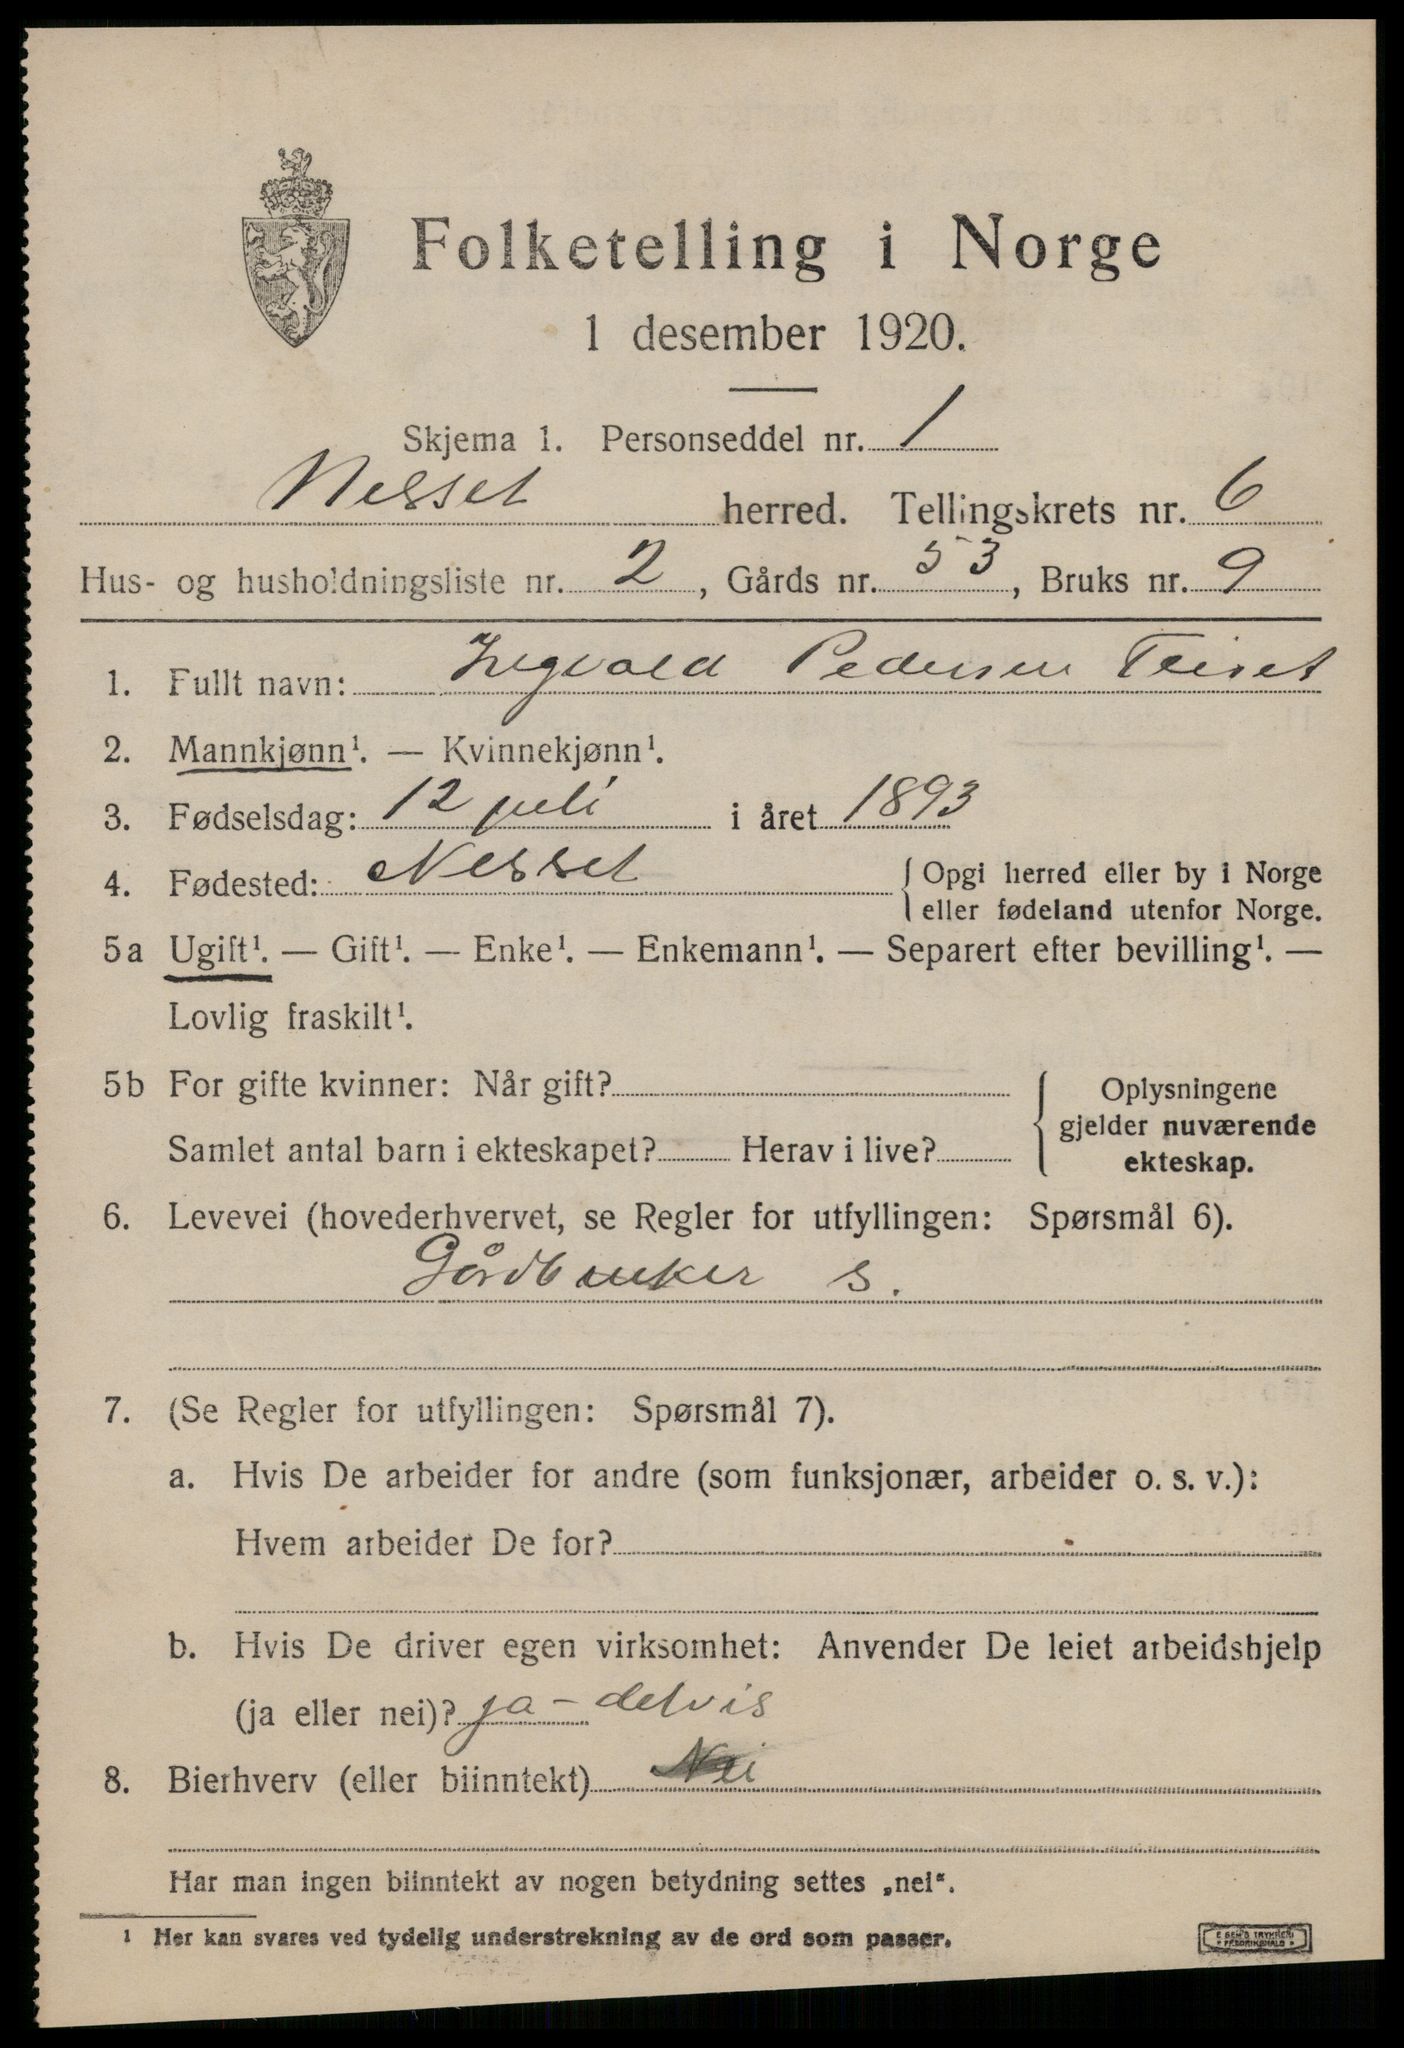 Folketelling i Norge
1 desember 1920.
Skjema 1. Personseddel nr. 1
Nesset herred. Tellingskrets nr. 6
Hus- og husholdningsliste nr. 2, Gårds nr. 53, Bruks nr. 9
1. Fullt navn: Ingvald Pedersen Teiset
2. Mannkjønn¹. — Kvinnekjønn¹.
3. Fødselsdag: 12 juli i året 1893
4. Fødested: Nesset {Opgi herred eller by i Norge
eller fødeland utenfor Norge.
5a Ugift¹. — Gift¹. — Enke¹. — Enkemann¹. — Separert efter bevilling¹. —
Lovlig fraskilt¹.
5b For gifte kvinner: Når gift?
Samlet antal barn i ekteskapet? Herav i live?
Oplysningene
gjelder nuværende
ekteskap.
6. Levevei (hovederhvervet, se Regler for utfyllingen: Spørsmål 6).
Gårdbruker s.
7. (Se Regler for utfyllingen: Spørsmål 7).
a. Hvis De arbeider for andre (som funksjonær, arbeider o. s. v.):
Hvem arbeider De for?
b. Hvis De driver egen virksomhet: Anvender De leiet arbeidshjelp
(ja eller nei)? ja – delvis
8. Bierhverv (eller biinntekt) Nei
Har man ingen biinntekt av nogen betydning settes „nei".
1 Her kan svares ved tydelig understrekning av de ord som passer.